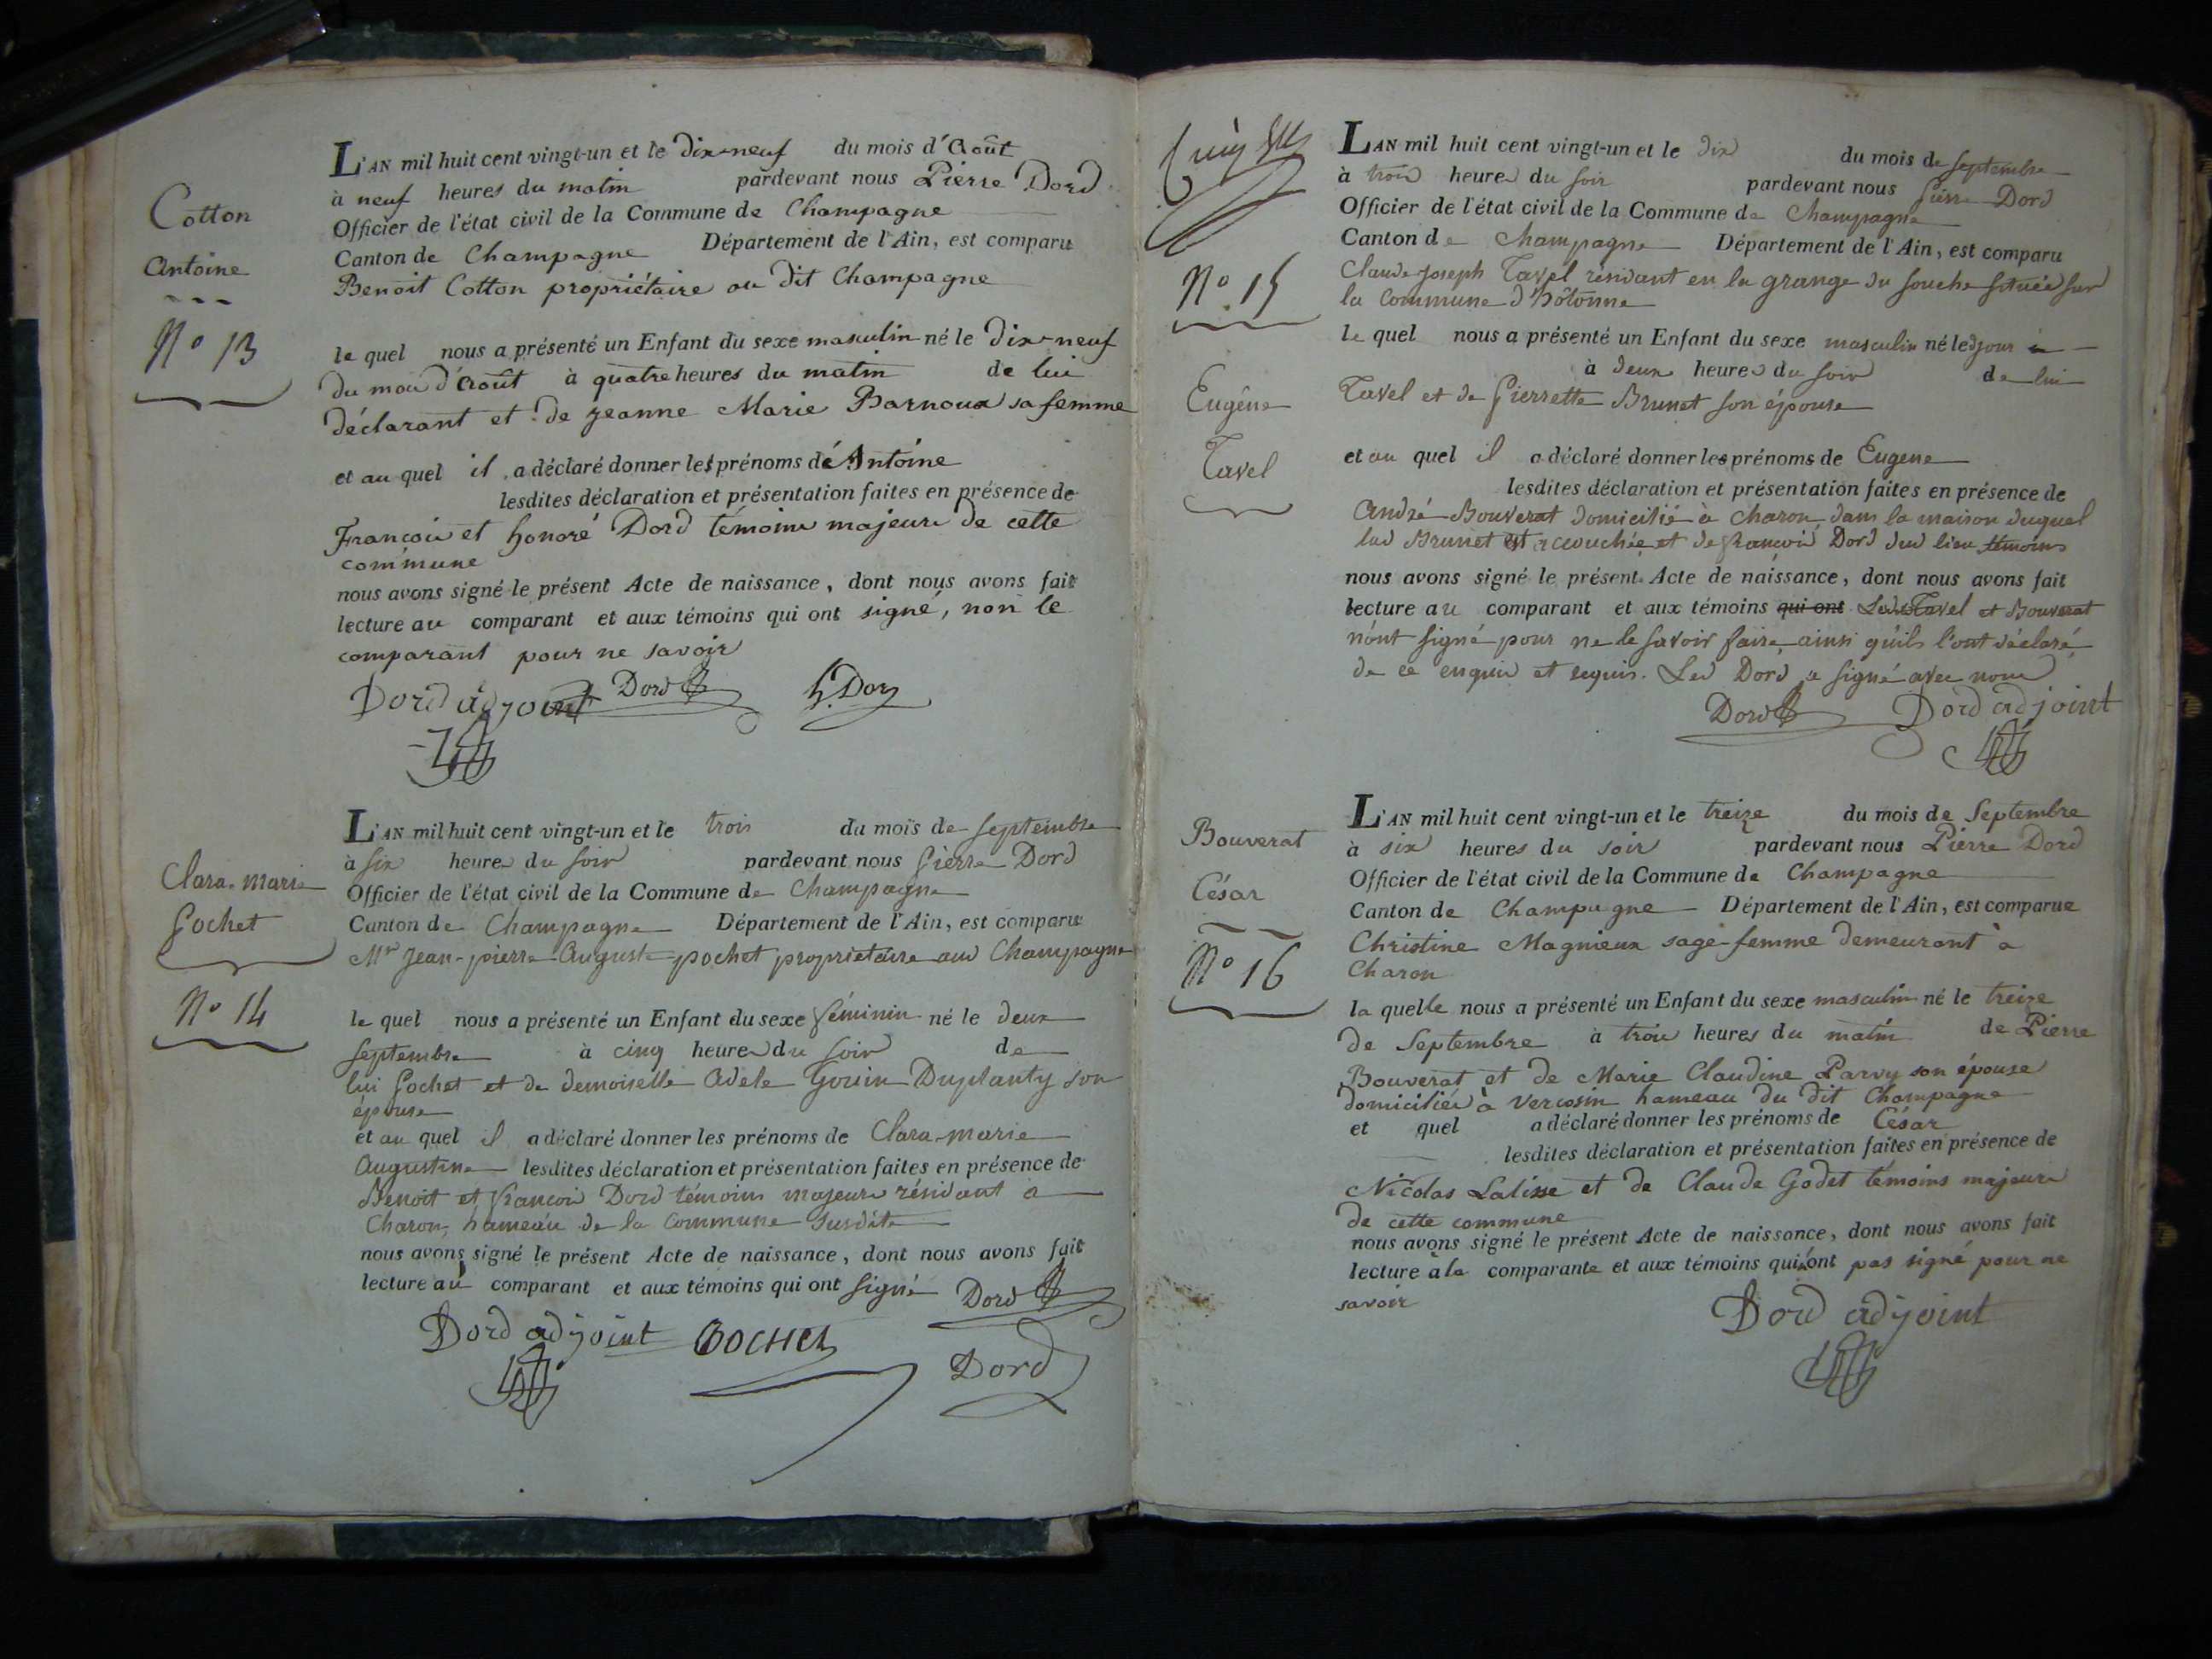 Cotton
Antoine
N° 13
L'AN mil huit cent vingt-un et le dix-neuf du mois d'Août
à neuf heures du matin pardevant nous Pierre Dord
Officier de l'état civil de la Commune de Champagne
Canton de Champagne Département de l'Ain, est comparu
Benoit Cotton propriétaire au dit Champagne
le quel nous a présenté un Enfant du sexe masculin né le dix-neuf
du mois d'Août à quatre heures du matin de lui
déclarant et de jeanne Marie Barnoux sa femme
et au quel il a déclaré donner les prénoms de Antoine
lesdites déclaration et présentation faites en présence de
François et honoré Dord témoins majeurs de cette
commune
nous avons signé le présent Acte de naissance, dont nous avons fait
lecture au comparant et aux témoins qui ont signé, non le
comparant pour ne savoir
Dord adjoint Dord h. Dord
Clara-marie
Pochet
N° 14
L'AN mil huit cent vingt-un et le trois du mois de septembre
à six heures du soir pardevant nous Pierre Dord
Officier de l'état civil de la Commune de Champagne
Canton de Champagne Département de l'Ain, est comparu
Mr jean-pierre Auguste pochet propriétaire aud Champagne
le quel nous a présenté un Enfant du sexe féminin né le deux
septembre à cinq heures du soir de
lui Pochet et de demoiselle Adele Gouin Duplanty son
épouse
et au quel il a déclaré donner les prénoms de Clara-marie
Augustine lesdites déclaration et présentation faites en présence de
Benoit et françois Dord témoins majeurs résidant a
Charon, hameau de la commune susdite
nous avons signé le présent Acte de naissance, dont nous avons fait
lecture au comparant et aux témoins qui ont signé
Dord
Dord adjoint POCHET
Dord
N° 15
Eugêne
Tavel
L'AN mil huit cent vingt-un et le dix du mois de septembre
à trois heures du soir pardevant nous Pierre Dord
Officier de l'état civil de la Commune de Champagne
Canton de Champagne Département de l'Ain, est comparu
Claude-joseph Tavel résidant en la grange du souche située sur
la commune d'hôtonne
le quel nous a présenté un Enfant du sexe masculin né led jour
à deux heures du soir de lui
Tavel et de Pierrette Brunet son épouse
et au quel il a déclaré donner les prénoms de Eugene
lesdites déclaration et présentation faites en présence de
André Bouverat domicilié à charon, dans la maison duquel
lad Brunet est accouchée et de françois Dord dud lieu témoins
nous avons signé le présent Acte de naissance, dont nous avons fait
lecture au comparant et aux témoins qui ont Leds Tavel et Bouverat
n'ont signé pour ne le savoir faire, ainsi qu'ils l'ont déclaré,
de ce enquis et requis. Led Dord a signé avec nous
Dord Dord adjoint
Bouverat
César
N° 16
L'AN mil huit cent vingt-un et le treize du mois de Septembre
à six heures du soir pardevant nous Pierre Dord
Officier de l'état civil de la Commune de Champagne
Canton de Champagne Département de l'Ain, est comparue
Christine Magnieux sage-femme demeurant à
Charon
la quelle nous a présenté un Enfant du sexe masculin né le treize
de Septembre à trois heures du matin de Pierre
Bouverat et de Marie Claudine Parvy son épouse
domiciliés à Vercosin hameau du dit Champagne
et quel a déclaré donner les prénoms de César
lesdites déclaration et présentation faites en présence de
Nicolas Lalisse et de Claude Godet témoins majeurs
de cette commune
nous avons signé le présent Acte de naissance, dont nous avons fait
lecture à la comparante et aux témoins qui n'ont pas signé pour ne
savoir
Dord adjoint